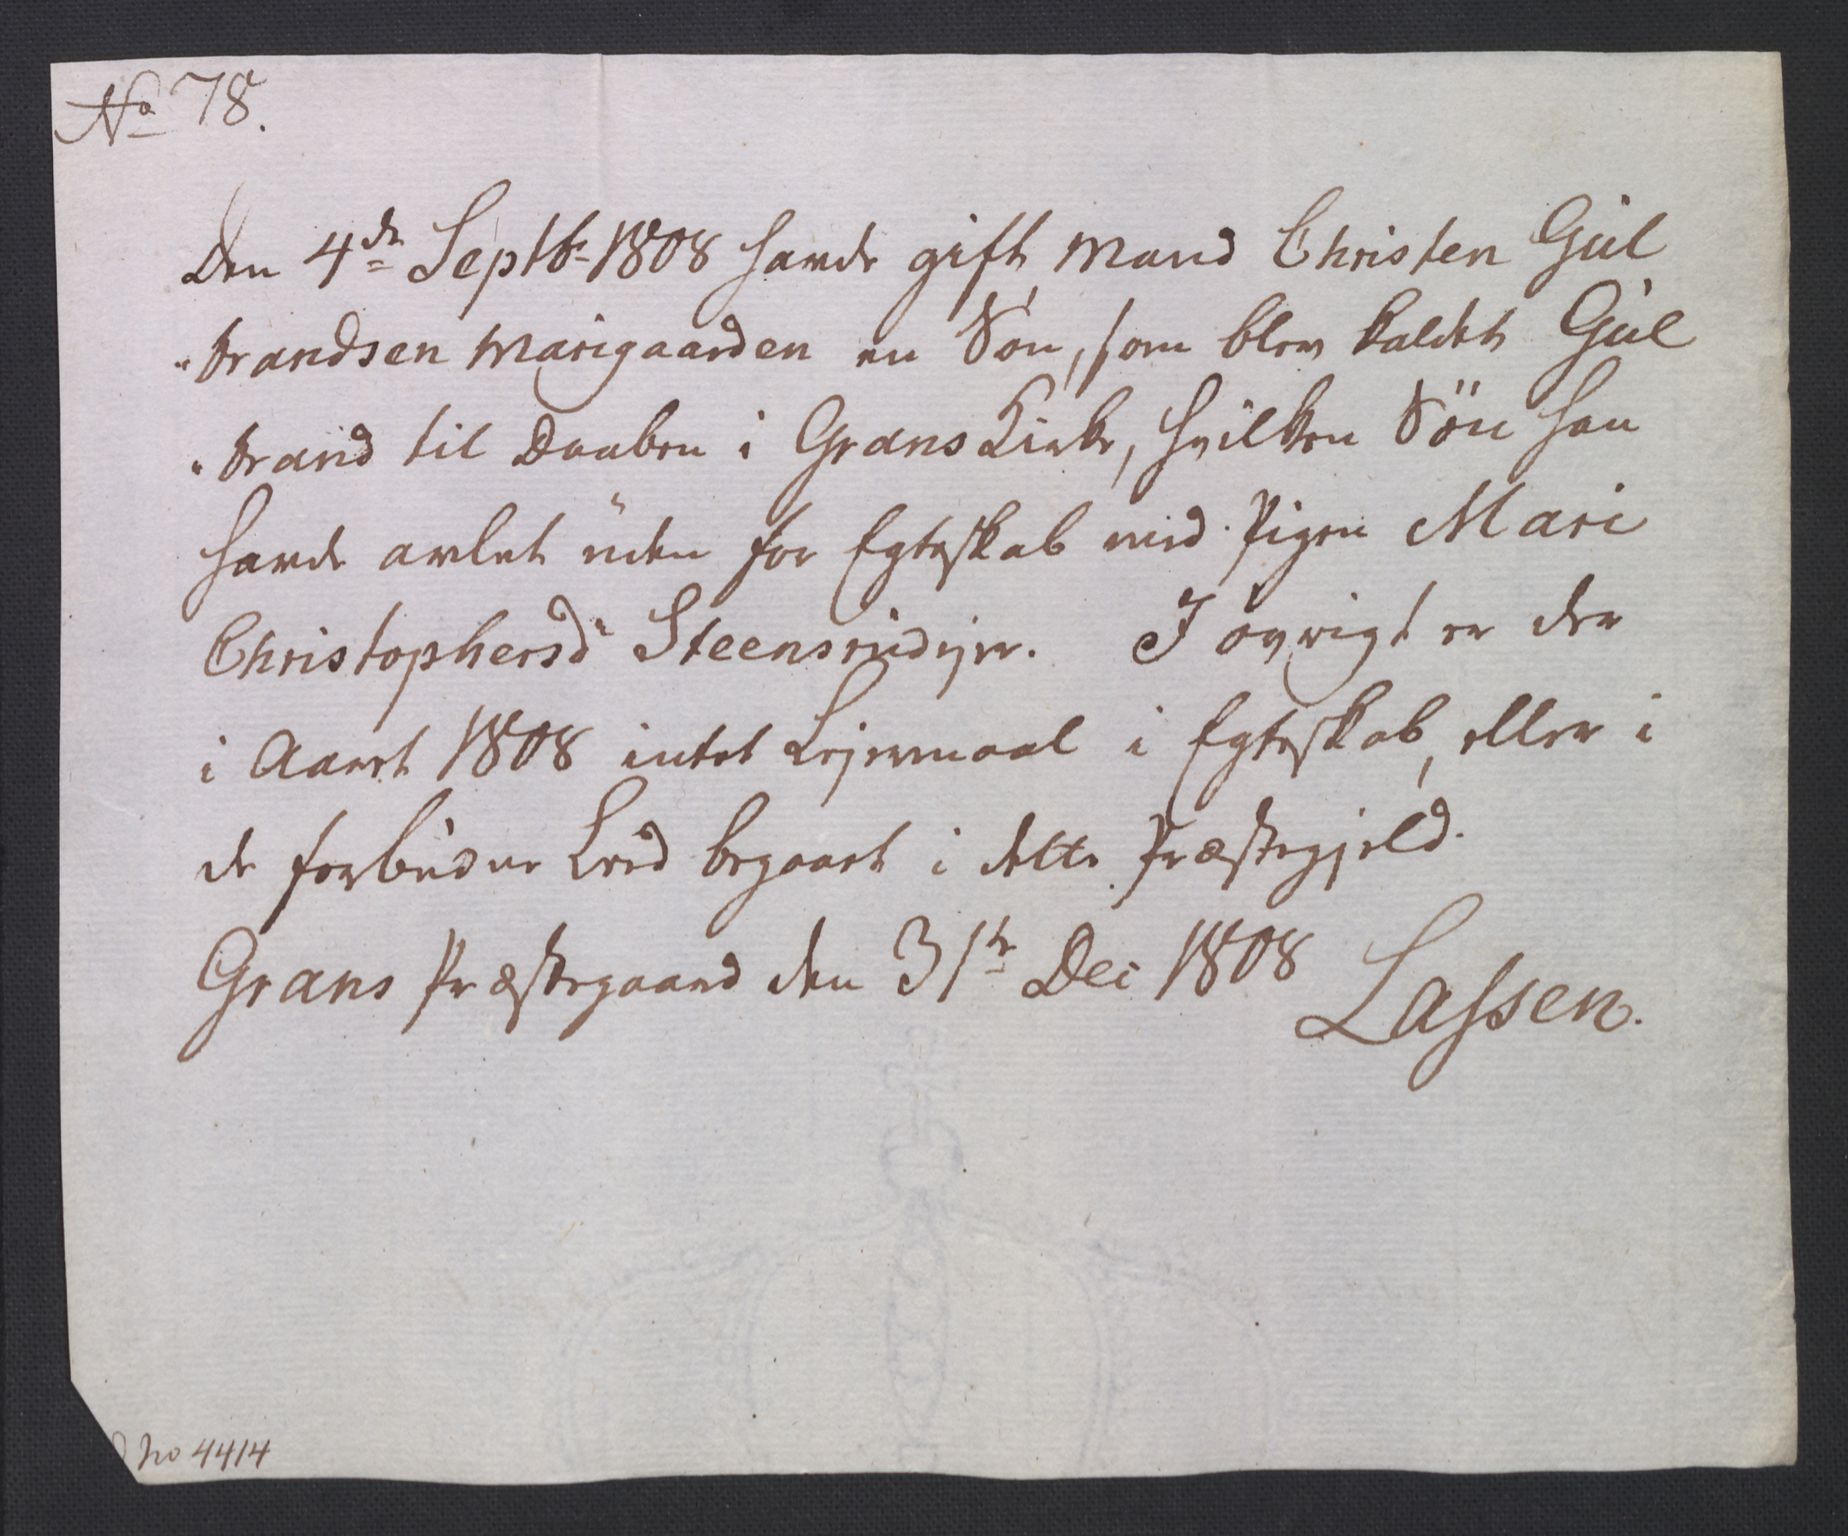 No 78.
Den 4de Septb 1808 havde gift Mand Christen Gul
"brandsen Marigaarden en Søn, som blev kaldet Gul
"brand til Daaben i Grans Kirke, hvilken Sön han
havde avlet uden for Egteskab med Pigen Mari
Christophersd Steensrudejer. I øvrigt er der
i Aaret 1808 intet Lejermaal i Egteskab, eller i
de forbudne Leed begaaet i dette Præstegjeld.
Grans Præstegaard den 31te Dec 1808 Lassen.
No 4414